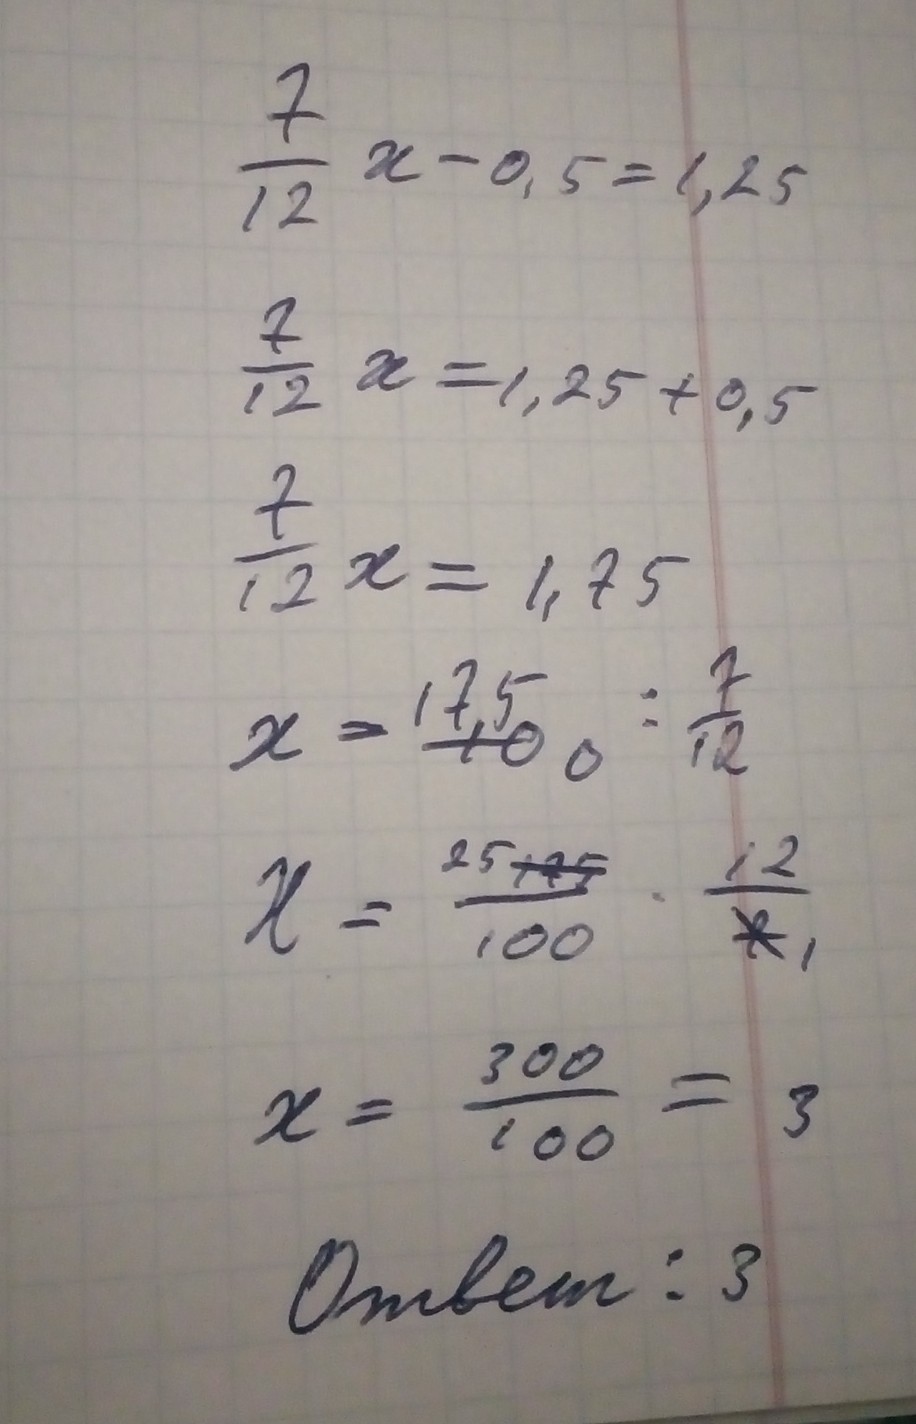 7/12 x - 0,5 = 1,25
7/12 x = 1,25 + 0,5
7/12 x = 1,75
x = 17,5/100 : 7/12
x = 25 175/100 · 12/7 1
x = 300/100 = 3
Ответ: 3